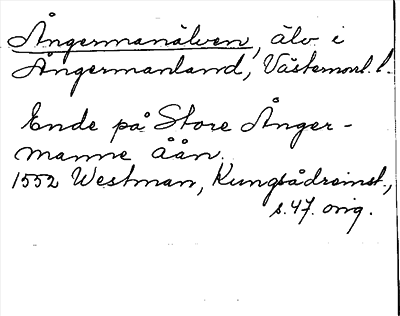 Ångermanälven, älv i
Ångermanland, Västernorrl. l.
Ende på Store Ånger-
manne åån.
1552 Westman, Kungsådreinst.,
s. 47. orig.